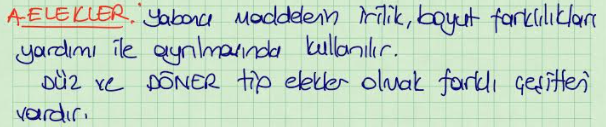 A-ELEKLER: Yabancı maddelerin irilik, boyut farklılıkları
yardımı ile ayrılmasında kullanılır.
DÜZ ve DÖNER tip elekler olmak farklı çeşitleri
vardır.